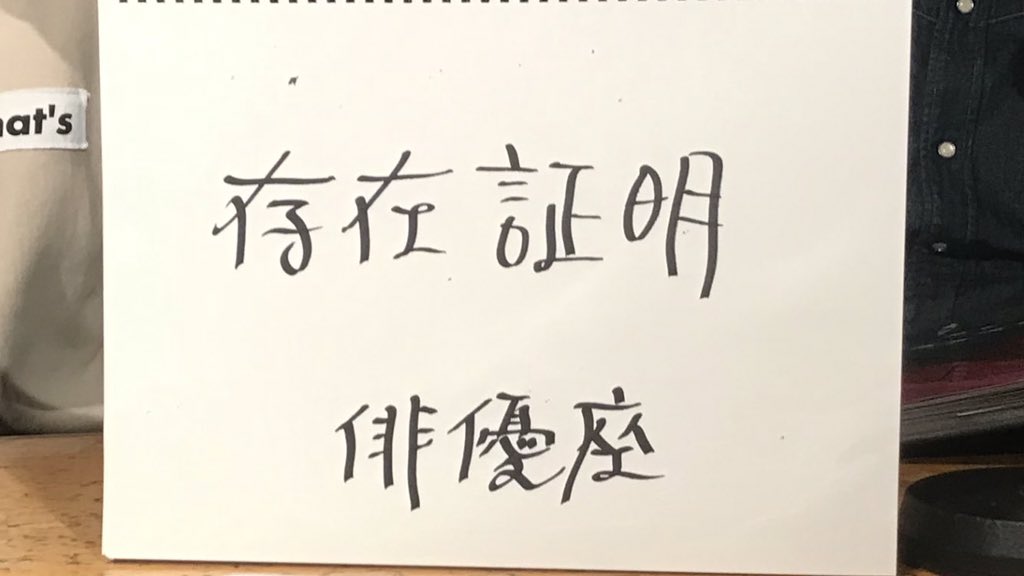 存在証明
俳優座
at's